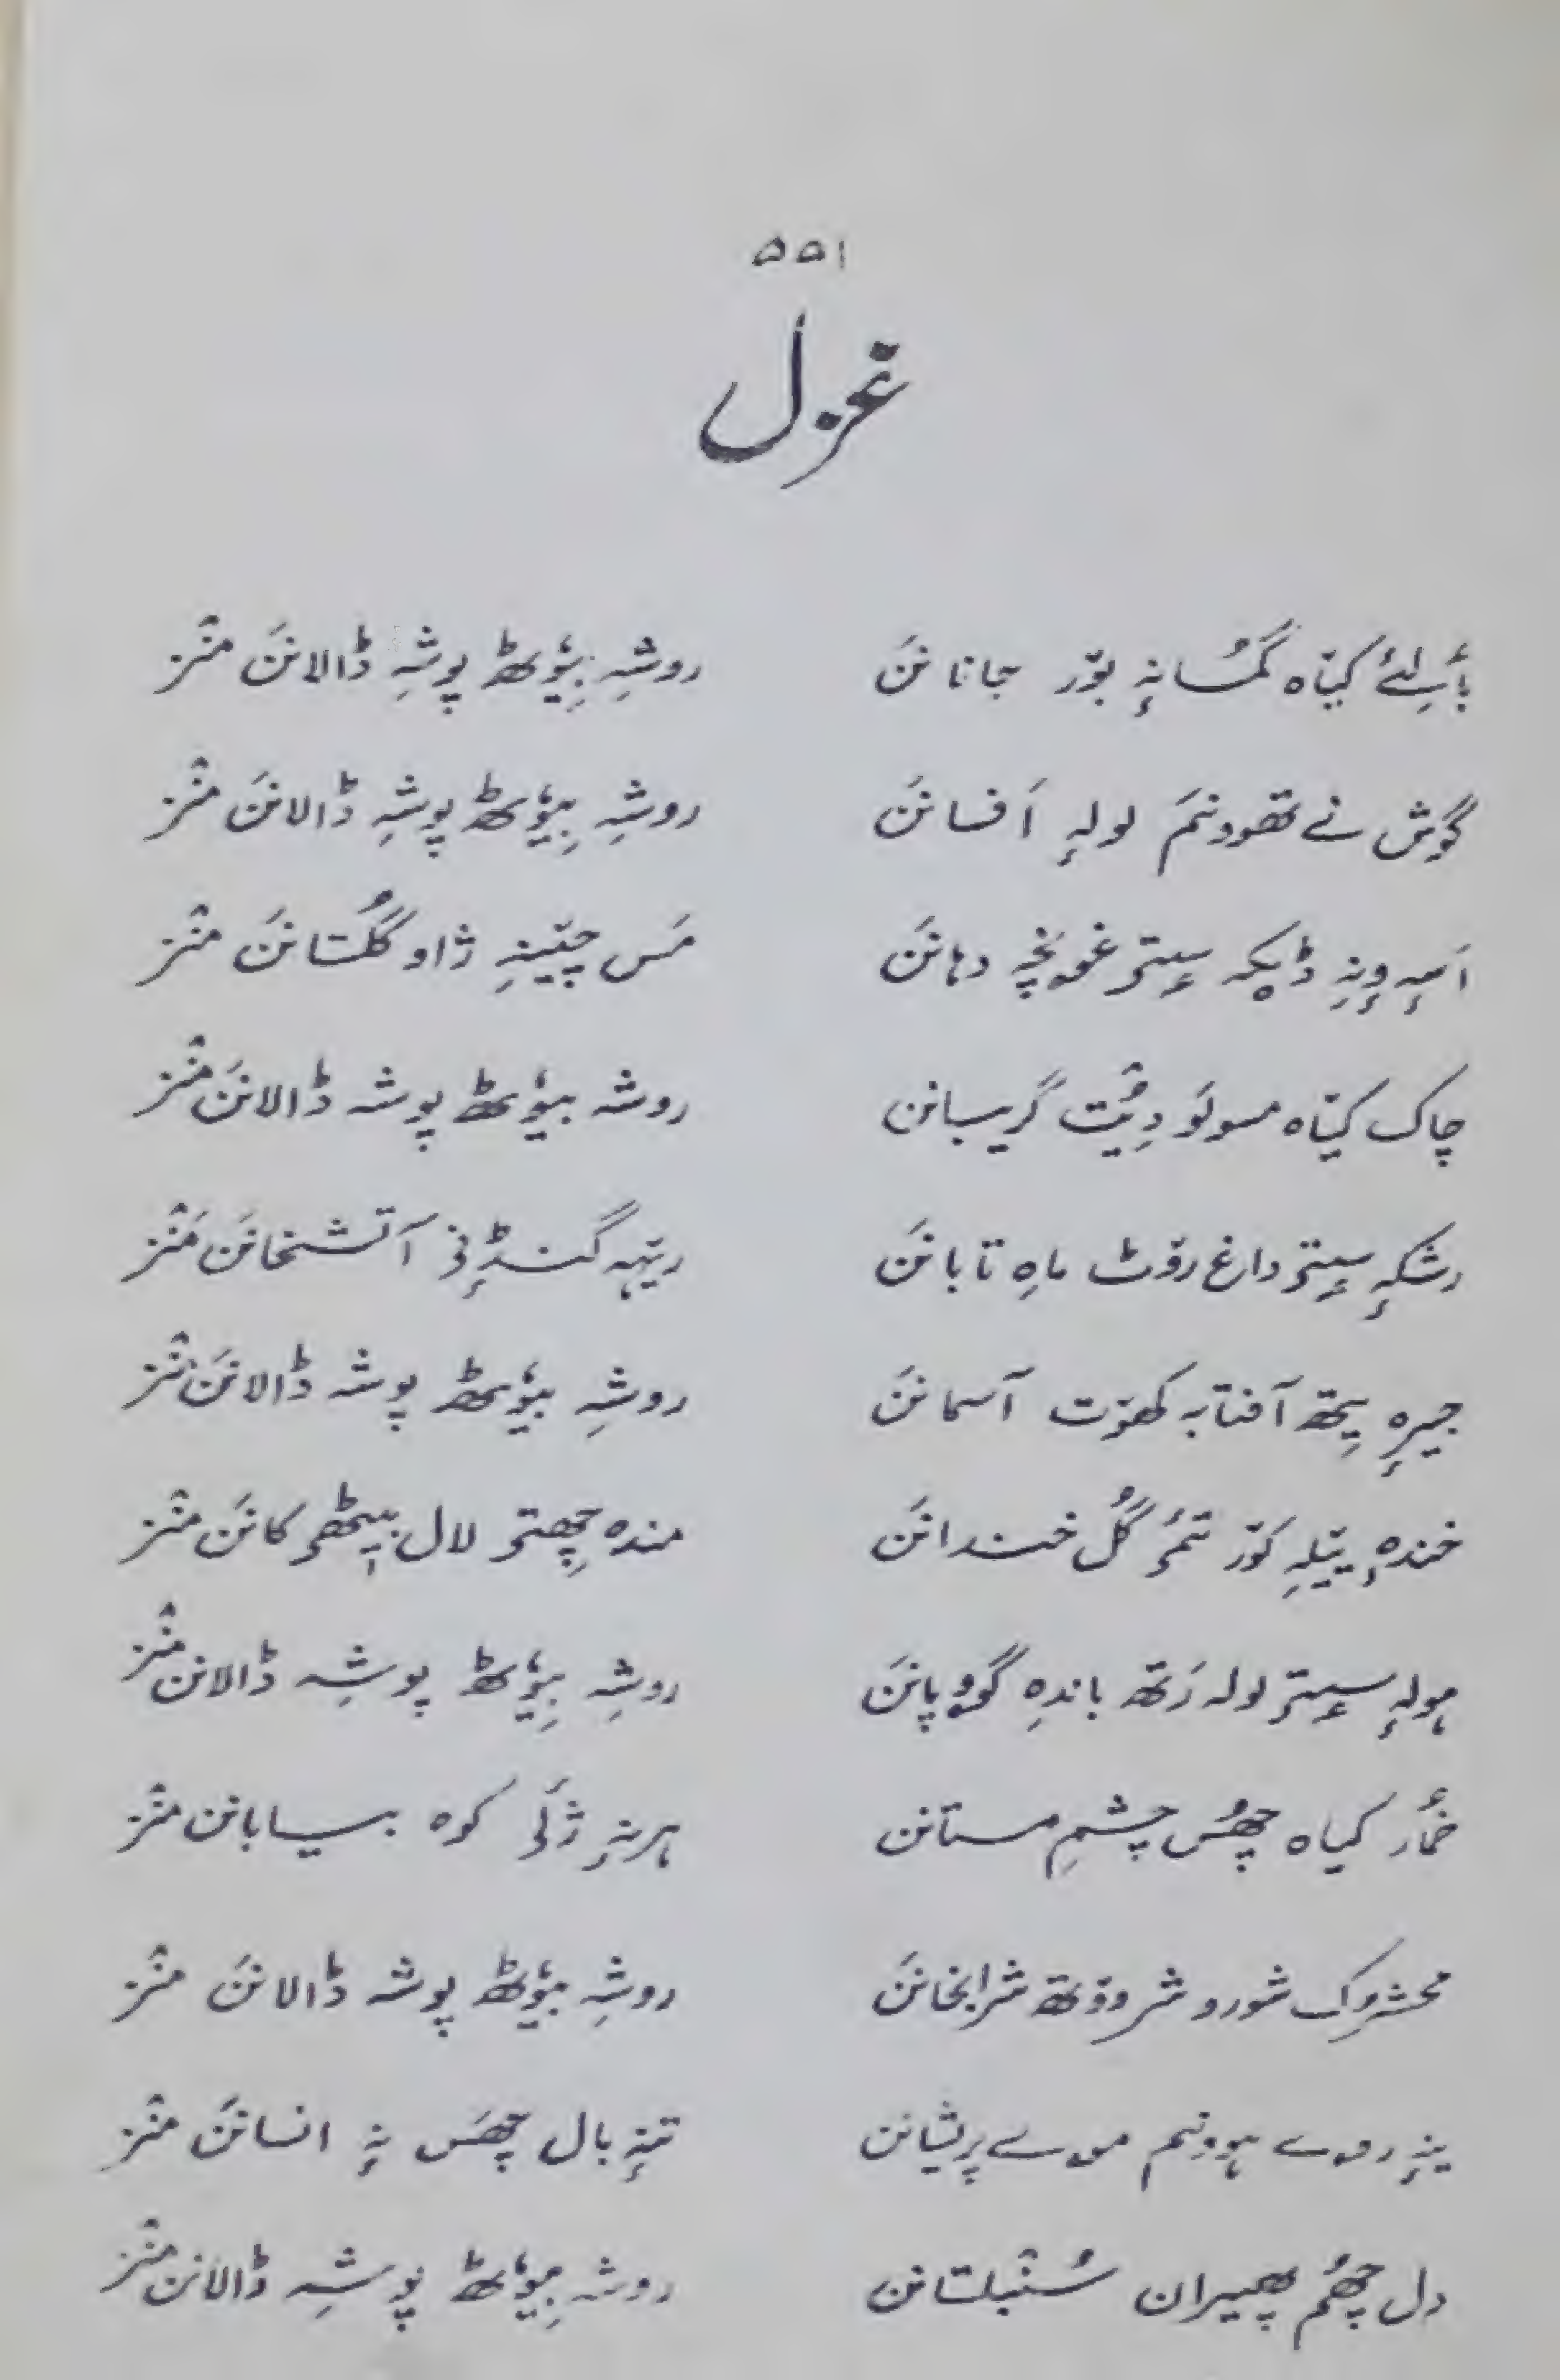 ۵۵۱
غزل
بٲلئے کیٛاہ گمُسانہٕ بوٚر جانانَن روشہِ بیٛوٗٹھ پوشہِ ڈالانَن منٛز
گوش نے تھوونَم لولہٕ اَفسانَن روشہِ بیٛوٗٹھ پوشہِ ڈالانَن منٛز
اَسہٕ وٕنہِ ڈیکہ سٟتۍ غونچہِ دہانَن مَس چیٚنہِ ژاو گُلستانَن منٛز
چاک کیٛاہ سولَو دِیُت گریبانن روشہ بیٛوٗٹھ پوشہ ڈالانَن منٛز
رشکہٕ سٟتۍ داغ روٚٹ ماہِ تابانَن ریٚہہ گنڈٕنۍ آتشخانَن مَنٛز
جیرٕہ یِتھ آفتابہ کھوٚت آسمانَن روشہِ بیٛوٗٹھ پوشہ ڈالانَن منٛز
خندہٕ ییٚلہِ کوٚر تمۍ گُل خندانَن مندہ چھِتۍ لال بیٖٹھۍ کانَن منٛز
ہولہٕ سٟتۍ لولہ رَتھ باندہِ گووپانَن روشہِ بیٛوٗٹھ پوشہِ ڈالانن منٛز
خمٲر کیاہ چھُس چشمِ مستانن ہرنہٕ ژٔلۍ کوہ بیابانن منٛز
محشروک شور و شر ووٚتھ شرابخانَن روشہِ بیٛوٗٹھ پوشہ ڈالانَن منٛز
ینہٕ روے ہوونم موے پریشانن تنہٕ بال چھَس نہٕ انسانَن منٛز
دل چھُم پھیران سُنبلستانن روشہِ بیٛوٗٹھ پوشہِ ڈالانن منٛز